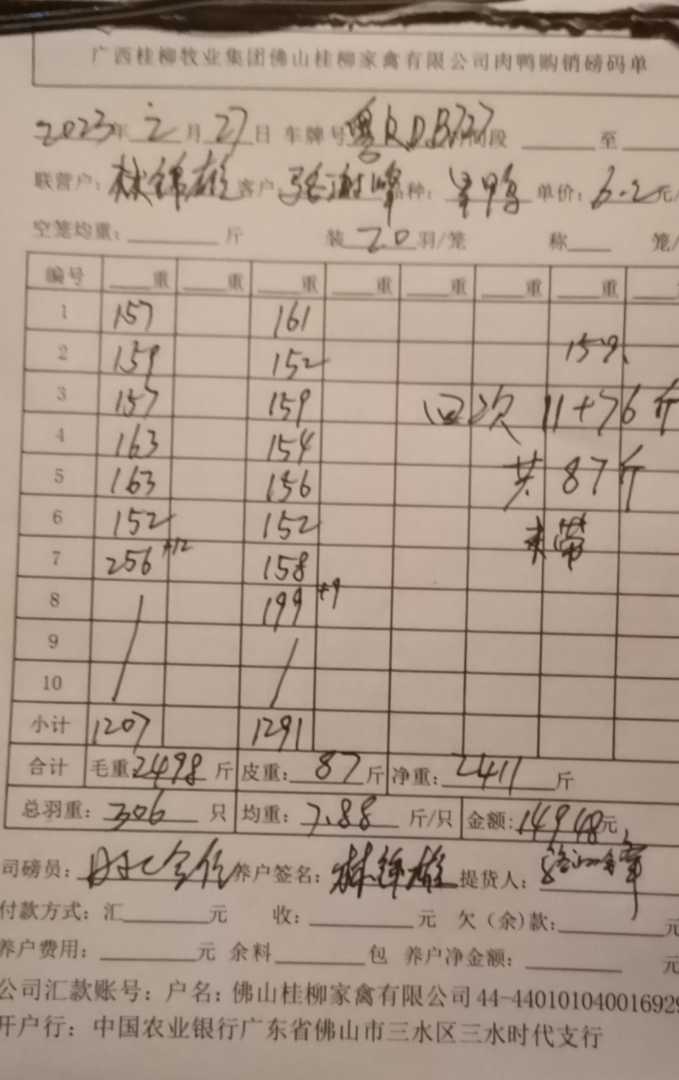 广西桂柳牧业集团佛山桂柳家禽有限公司肉鸭购销磅码单
2023年 2 月 27 日 车牌号 粤R.DB727 时间段 至
联营户: 林锦雄 客户: 品种: 单价: 6.2 元/
空笼均重: 斤 装 20 羽/笼 称 笼/
编号 重 重 重 重 重 重 重
1 157 161
2 159 152 159
3 157 159 四次 11+76斤
4 163 154
5 163 156 共 87斤
6 152 152
7 256 +12 158
8 199 +9
9
10
小计 1207 1291
合计 毛重: 2498 斤 皮重: 87 斤 净重: 2411 斤
总羽重: 306 只 均重: 7.88 斤/只 金额: 14948 元
司磅员: 养户签名: 林锦雄 提货人:
付款方式: 汇 元 收: 元 欠(余)款: 元
养户费用: 元 余料 包 养户净金额: 元
公司汇款账号: 户名: 佛山桂柳家禽有限公司 44-440101040016929
开户行: 中国农业银行广东省佛山市三水区三水时代支行